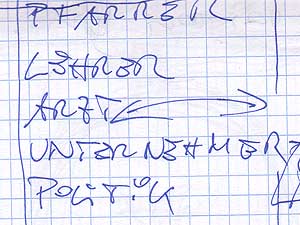 PFARRER
LEHRER
ARZT
UNTERNEHMER
POLITIK